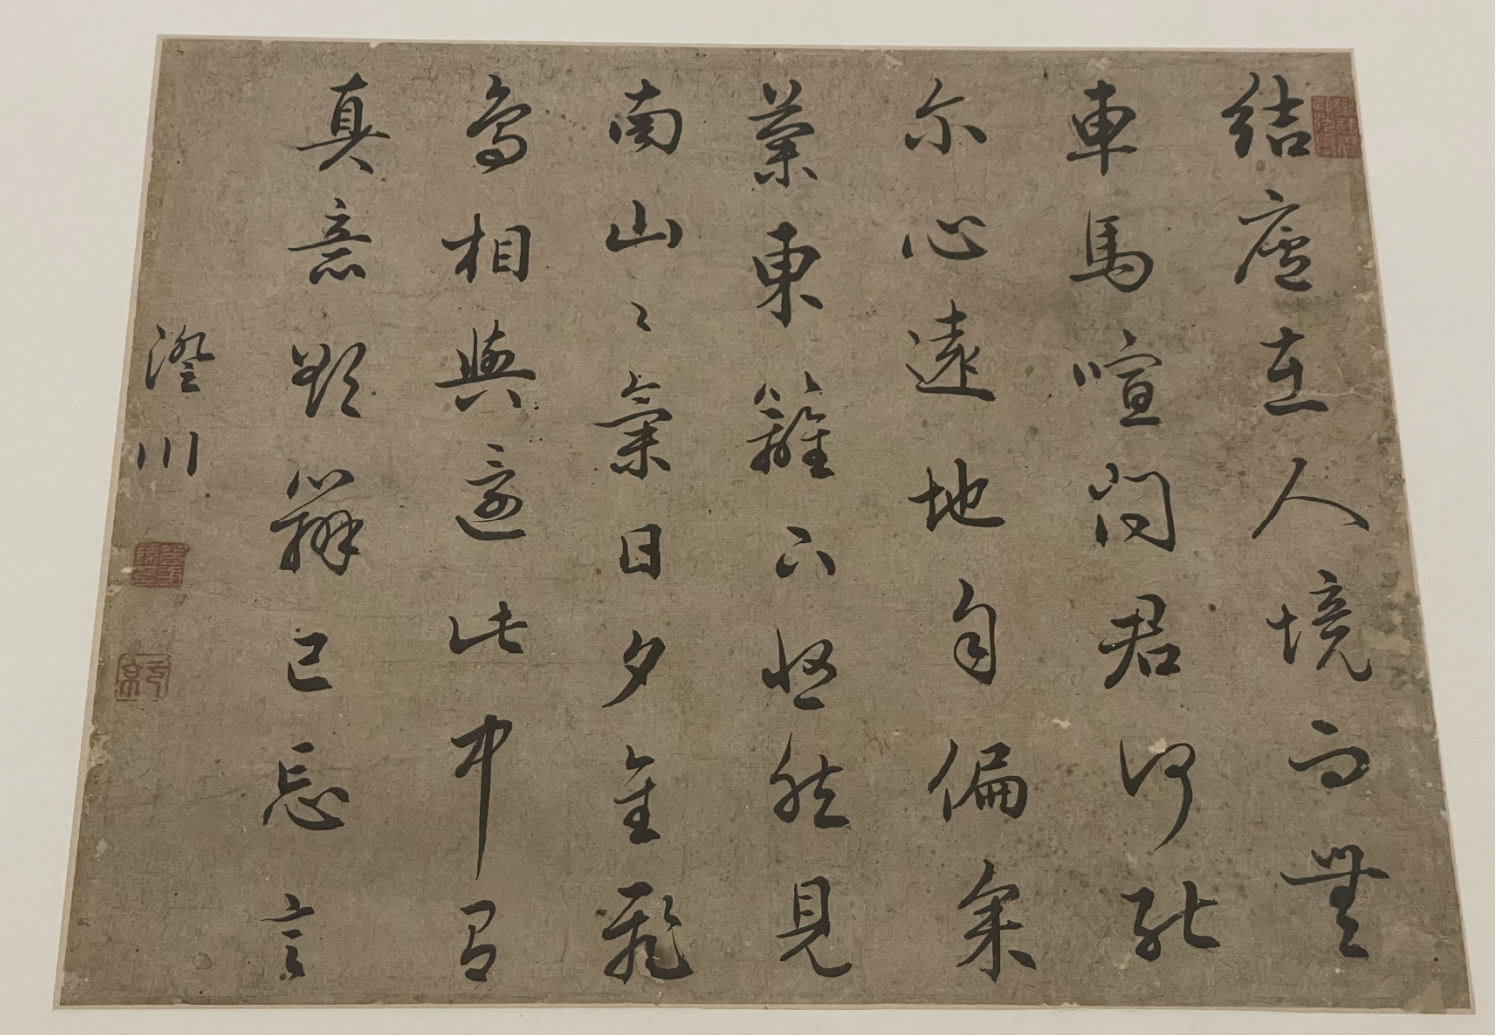 結廬在人境而無
車馬喧問君何能
尔心遠地自偏采
菊東籬下悠然見
南山〻氣日夕佳飛
鳥相與還此中有
真意欲辨已忘言
澄川